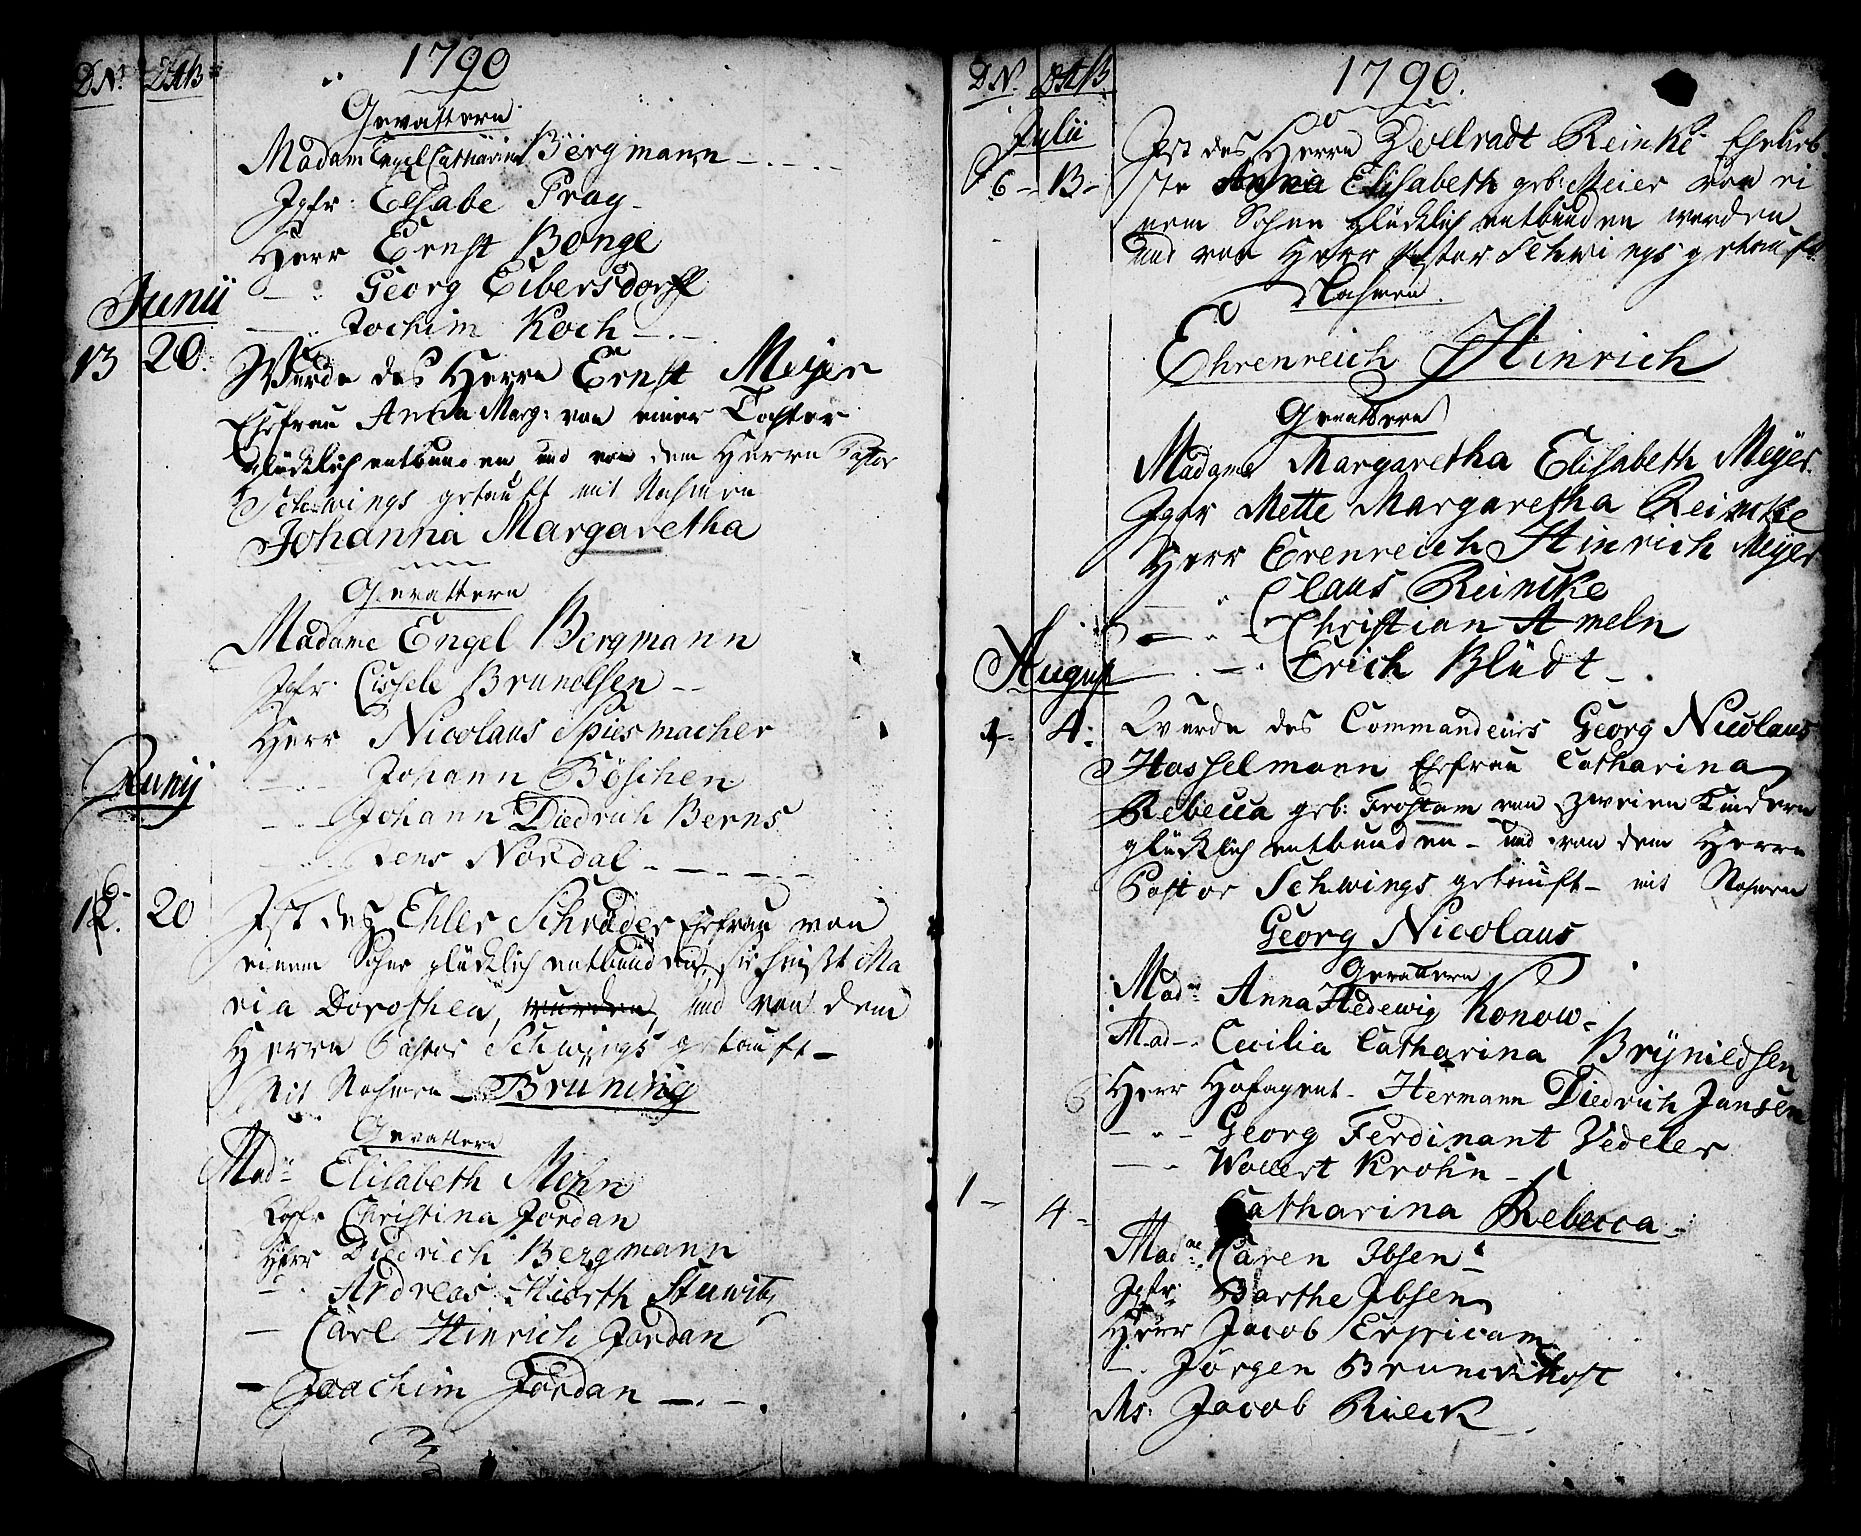 D.N. D.A.B.
1790
Gevattern
Madam Engel Catharina Bergmann
Jgfr. Elsabe Pray
Herr Ernst Bonge
Georg Eibersdorff
Jochim Koch
Junii
13 20. Wurde des Herrn Ernst Meijer
Ehefrau Anna Marg: von einer Tochter
glücklich entbunden und von dem Herrn Pastor
Schwings getauft mit Nahmen
Johanna Margaretha
Gevattern
Madame Engel Bergmann
Jgfr. Cissele Brunelsen
Herr Nicolaus Spiesmacher
Johann Böschen
Johann Diedrich Berns
Jens Nordal
Junij
20 Ist des Ehler Schröder Ehefrau von
einem Sohne glücklich entbunden, sie heißt Ma
ria Dorothea, wurden, und von dem
Herrn Pastor Schwings getauft
Mit Nahmen Bruning
Gevattern
Mad. Elisabeth Mohn
Jgfr Christina Jordan
Herr Diedrich Bergmann
Andreas Hiorth Stuwitz
Carl Hinrich Jordan
Joachim Jordan
D.N. D.A.B.
1790.
Julii
6 13 Ist des Herrn Vollradt Reinke Ehelieb
ste Anna Elisabeth geb: Meier von ei
nem Sohne glücklich entbunden worden
und von Herr Pastor Schwings getauft
Nahmen
Ehrenreich Hinrich
Gevattern
Madame Margaretha Elisabeth Meÿer.
Jgfr Mette Margaretha Reincke
Herr Erenreich Hinrich Meÿer
Claus Reincke
Christian Ameln
Erich Blüdt
August
1. 4. Wurde des Commandeurs Georg Nicolaus
Hasselmann Ehefrau Catharina
Rebecca geb: Frostam von zweien Kindern
glücklich entbunden und von dem Herrn
Pastor Schwings getauft mit Nahmen
Georg Nicolaus
Gevattern
Mad. Anna Hedewig Konow
Mad. Cecilia Catharina Brÿnieldsen
Herr Hofagent Hermann Diedrich Jansen
Georg Ferdinant Vedeler
Wollert Krohn
1 4 Catharina Rebecca
Mad. Caren Ibsen
Jgfr. Barthe Ibsen
Herr Jacob Erpicam
Jörgen Brunckhost
Ms. Jacob Rieck